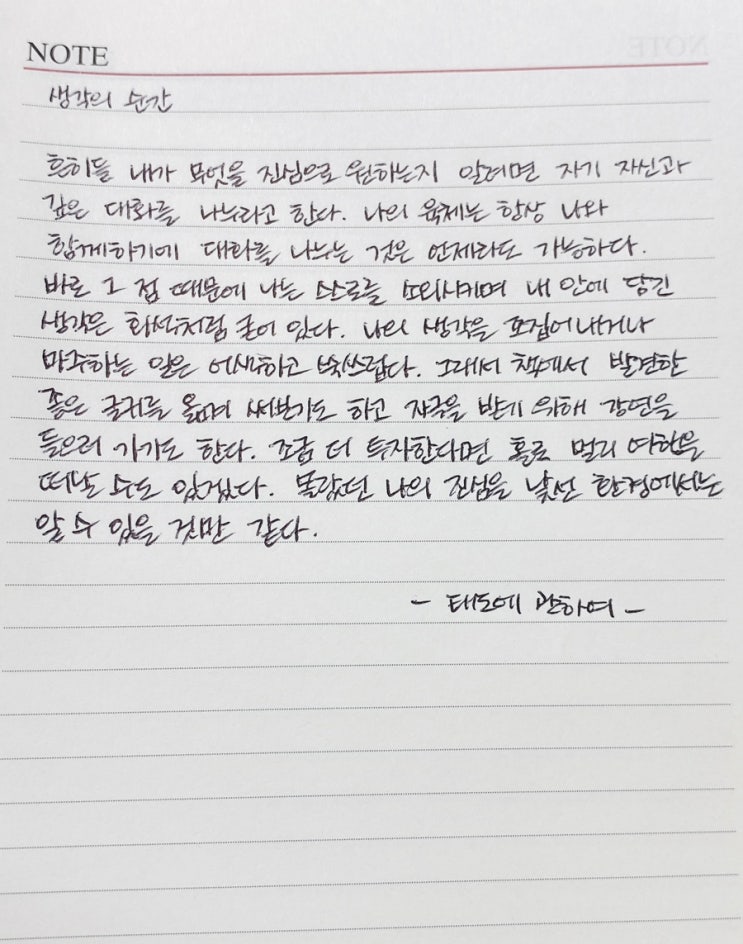 NOTE
생각의 순간
흔히들 내가 무엇을 진심으로 원하는지 알려면 자기 자신과
깊은 대화를 나누라고 한다. 나의 육체는 항상 나와
함께하기에 대화를 나누는 것은 언제라도 가능하다.
바로 그 점 때문에 나는 스스로를 소외시키며 내 안에 담긴
생각은 화석처럼 굳어 있다. 나의 생각을 끄집어내거나
마주하는 일은 어색하고 쑥쓰럽다. 그래서 책에서 발견한
좋은 글귀를 옮겨 써보기도 하고 자극을 받기 위해 강연을
들으러 가기도 한다. 조금 더 투자한다면 홀로 멀리 여행을
떠날 수도 있겠다. 몰랐던 나의 진심을 낯선 환경에서는
알 수 있을 것만 같다.
- 태도에 관하여 -